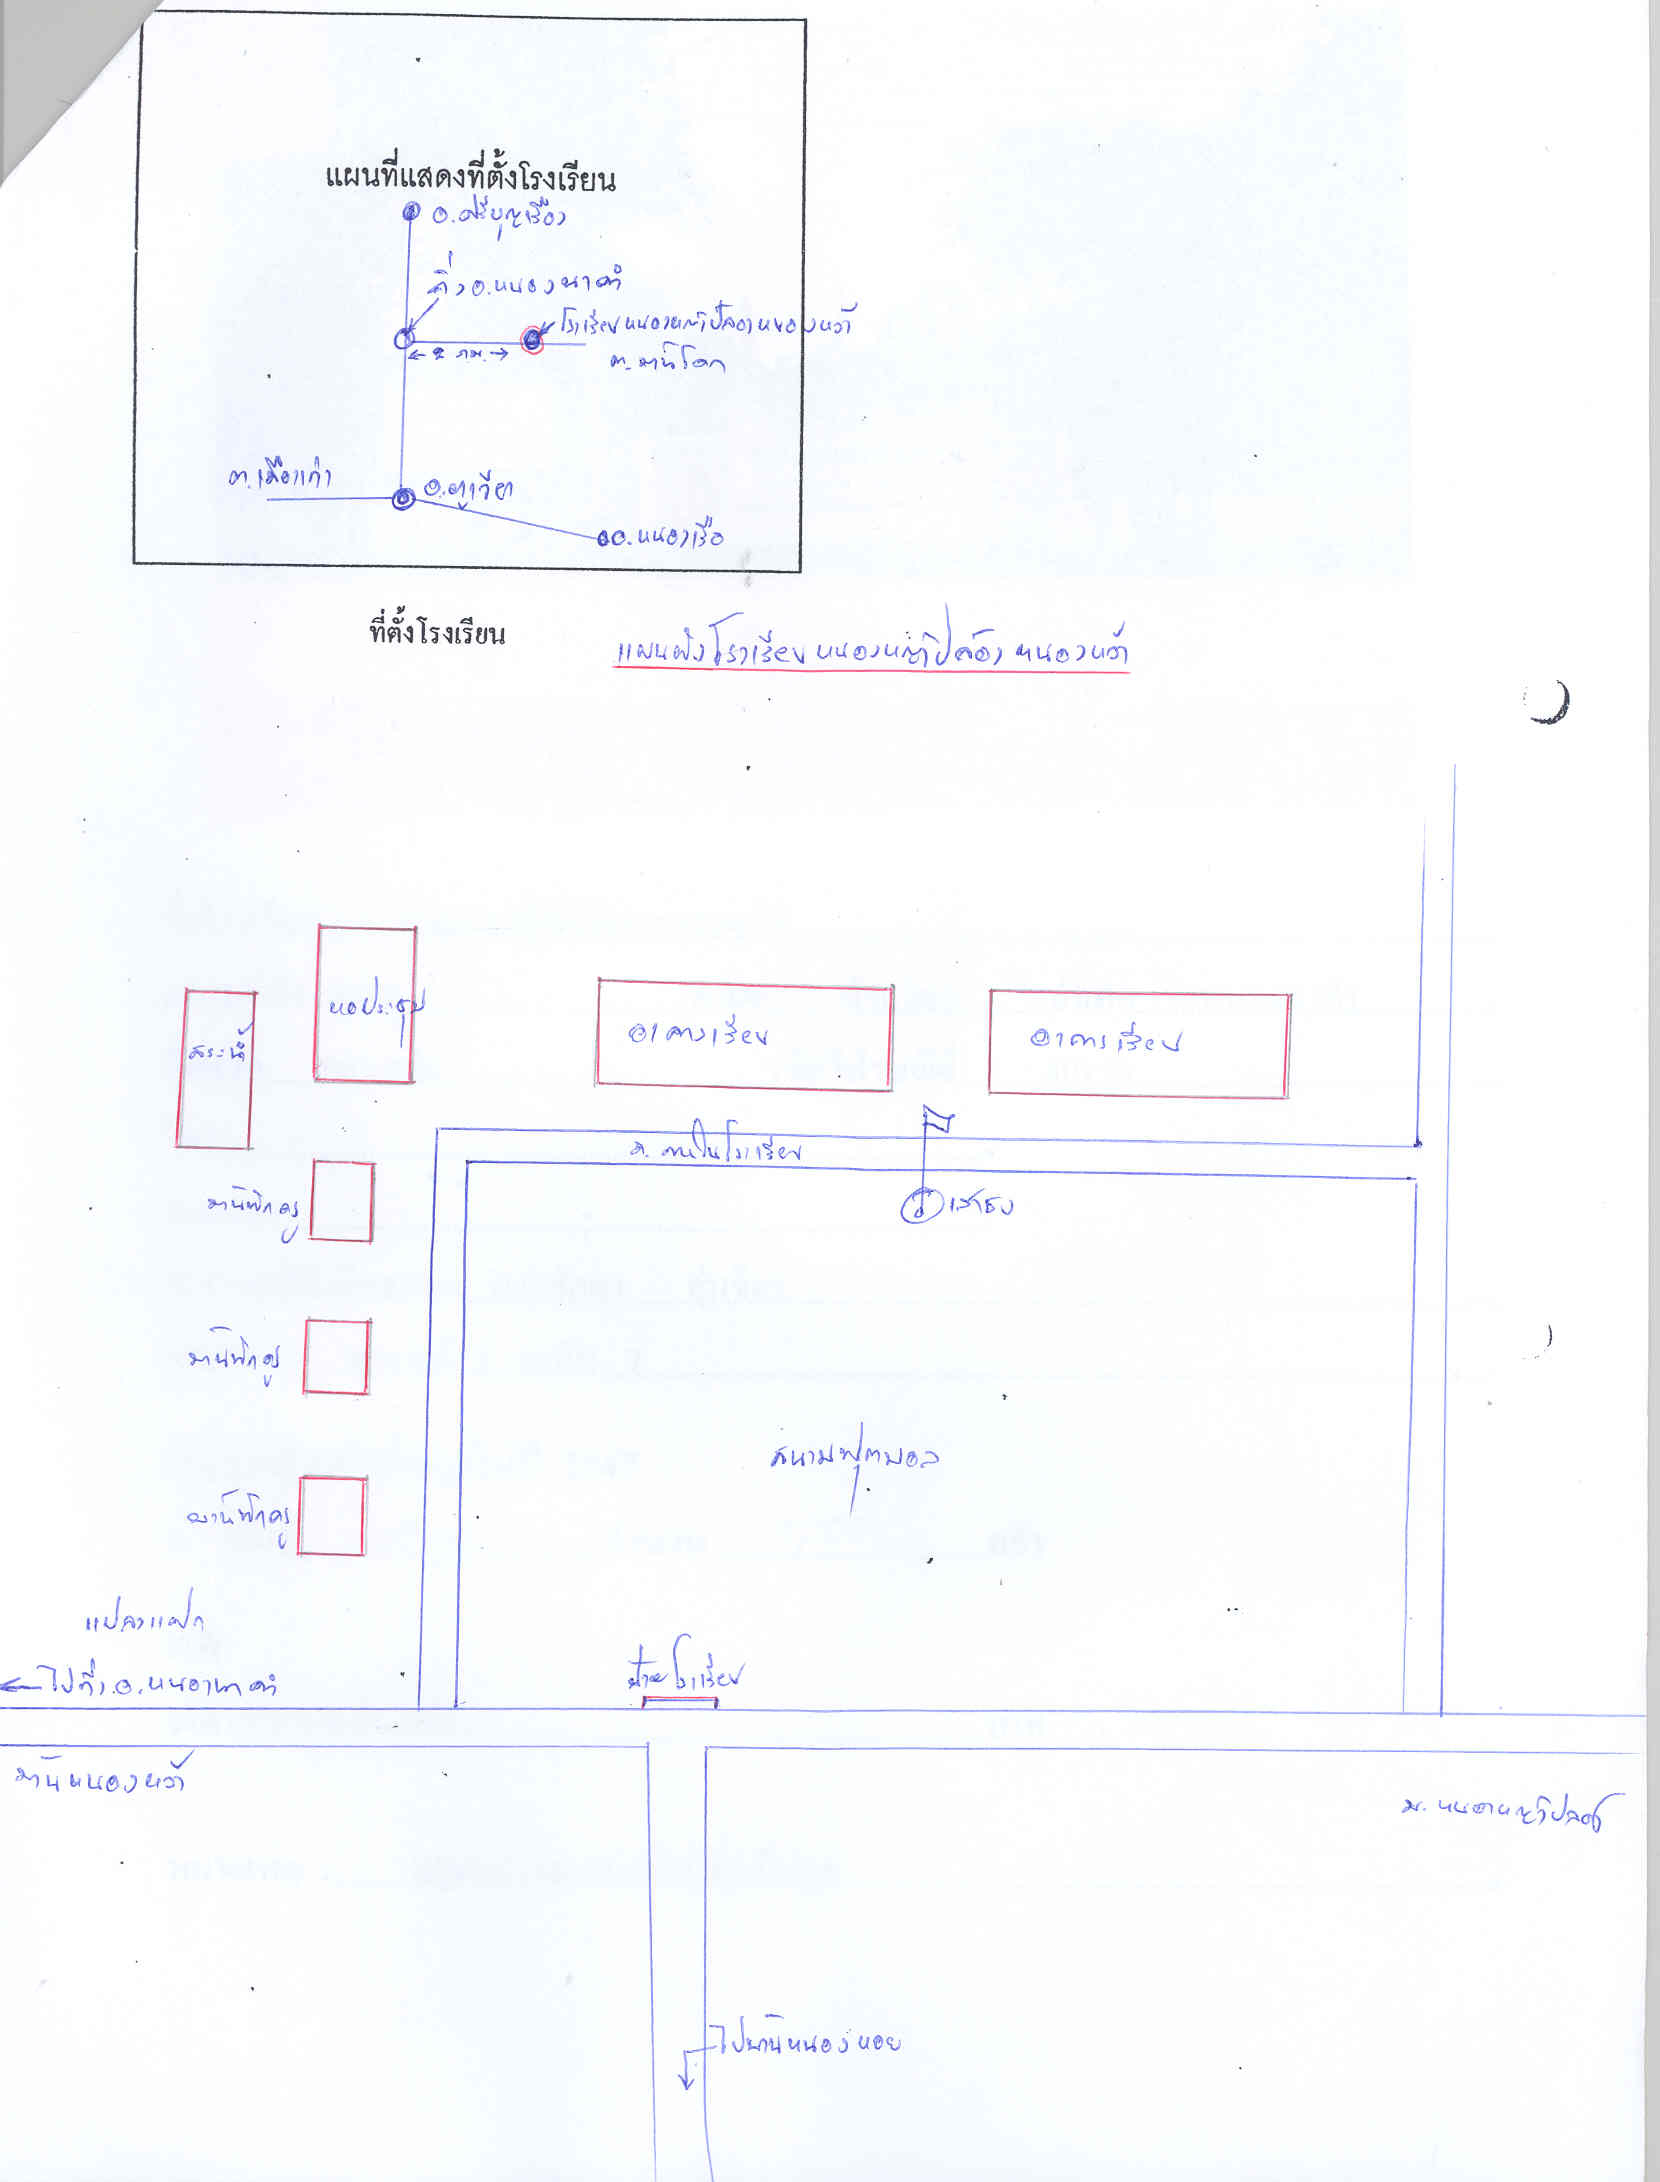 แผนที่แสดงที่ตั้งโรงเรียน
อ.ศรีบุญเรือง
กิ่ง อ.หนองนาคำ
โรงเรียนหนองหญ้าปล้องหนองหว้า
← 2 กม. →
ต.บ้านโคก
ต.เมืองเก่า
อ.ภูเวียง
อ.หนองเรือ
ที่ตั้งโรงเรียน
แผนผังโรงเรียนหนองหญ้าปล้องหนองหว้า
หอประชุม
อาคารเรียน
อาคารเรียน
สระน้ำ
ถ.ภายในโรงเรียน
บ้านพักครู
เสาธง
บ้านพักครู
สนามฟุตบอล
บ้านพักครู
แปลงแฝก
ป้ายโรงเรียน
← ไปกิ่ง.อ.หนองนาคำ
บ้านหนองหว้า
บ.หนองหญ้าปล้อง
ไปบ้านหนองหอย